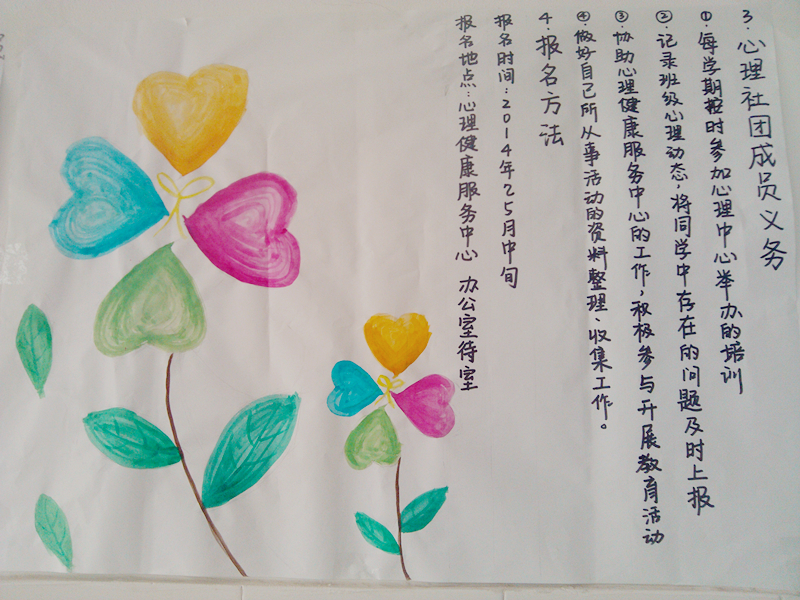 3.心理社团成员义务
①每学期按时参加心理中心举办的培训
②记录班级心理动态,将同学中存在的问题及时上报
③协助心理健康服务中心的工作,积极参与开展教育活动
④做好自己所从事活动的资料整理、收集工作。
4.报名方法
报名时间:2014年25月中旬
报名地点:心理健康服务中心 办公室待室